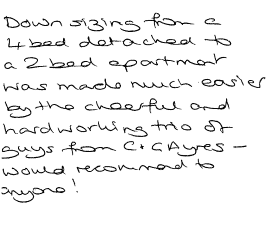 Down sizing from a
4 bed detached to
a 2 bed apartment
was made much easier
by the cheerful and
hardworking trio of
guys from C+G Ayres -
would recommend to
anyone!